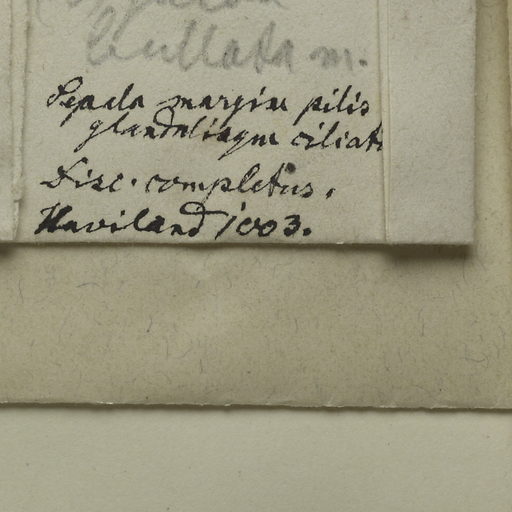 bullata m.
Sepala margine pilis
glandulisque ciliat
Disc. completus.
Haviland 1003.